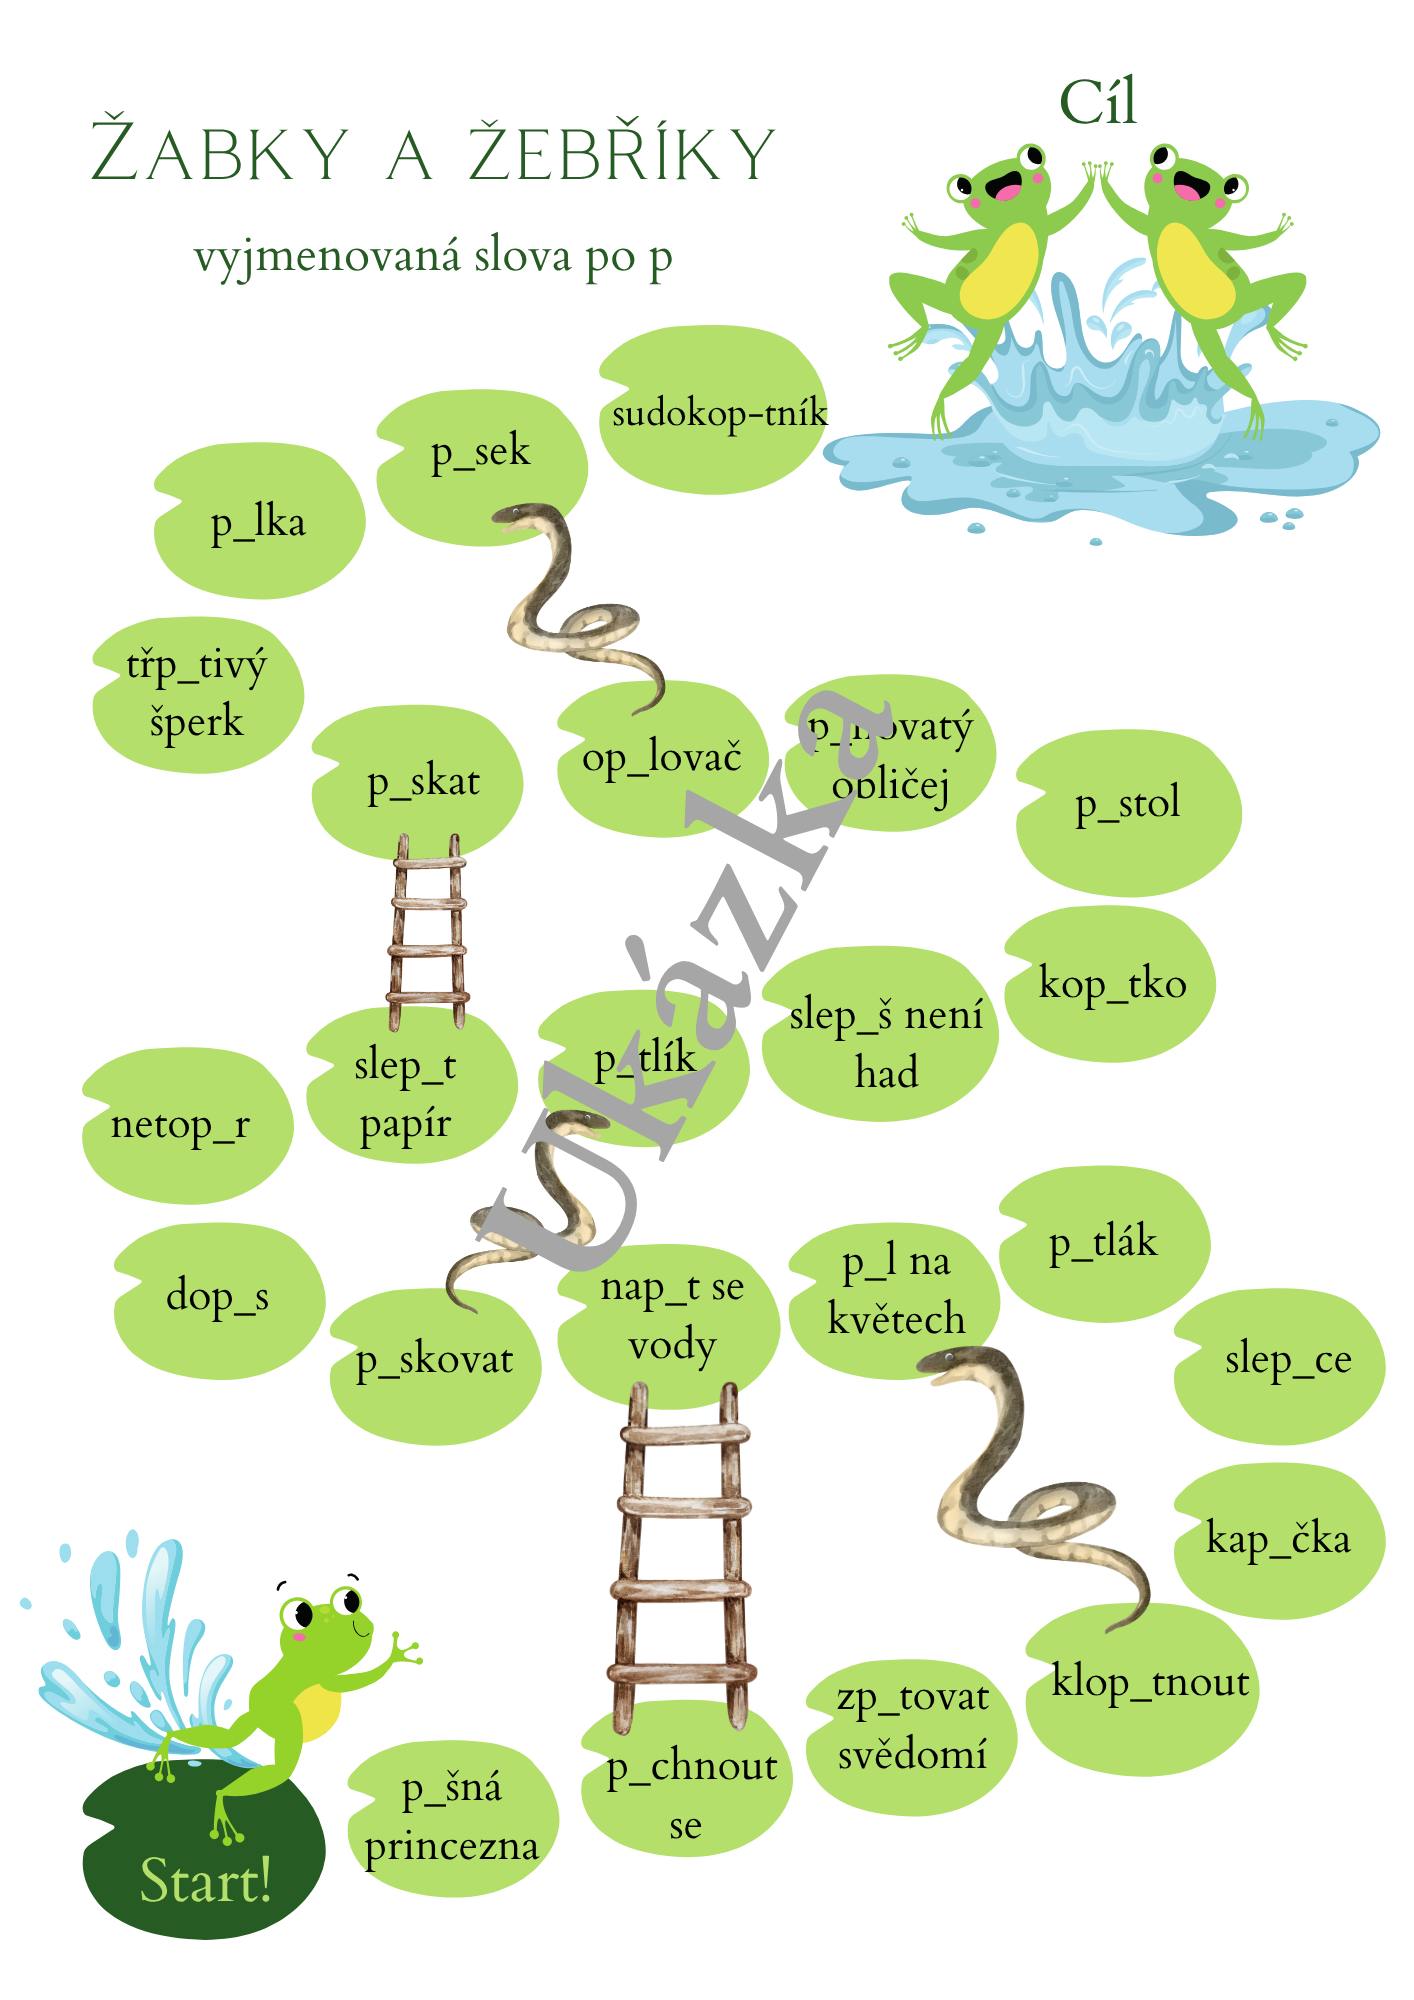 Cíl
Žabky a žebříky
vyjmenovaná slova po p
sudokop-tník
p_sek
p_lka
třp_tivý
šperk
p_skat
op_lovač
p_hovatý
obličej
p_stol
kop_tko
slep_š není
had
p_tlík
slep_t
papír
netop_r
dop_s
p_skovat
nap_t se
vody
p_l na
květech
p_tlák
slep_ce
kap_čka
klop_tnout
zp_tovat
svědomí
p_chnout
se
p_šná
princezna
Start!
Ukázka